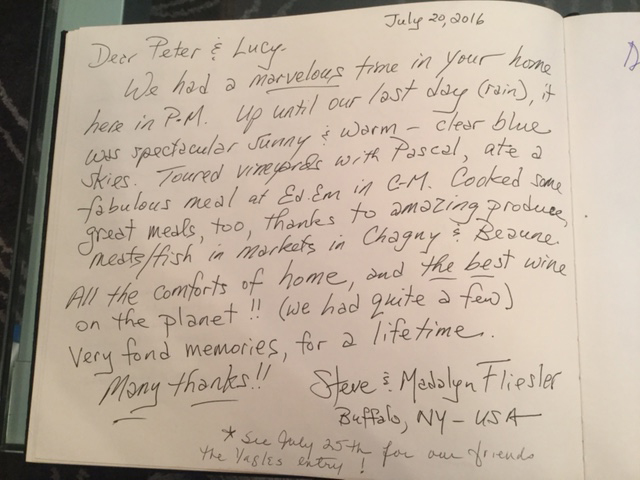 July 20, 2016
Dear Peter & Lucy-
We had a marvelous time in your home
here in P-M. Up until our last day (rain), it
was spectacular sunny & warm - clear blue
skies. Toured vineyards with Pascal, ate a
fabulous meal at Ed.Em in C-M. Cooked some
great meals, too, thanks to amazing produce,
meats/fish in markets in Chagny & Beaune.
All the comforts of home, and the best wine
on the planet!! (we had quite a few)
Very fond memories, for a lifetime.
Many thanks!!
Steve & Madalyn Fliesler
Buffalo, NY - USA
* See July 25th for our friends
the Yagles entry!